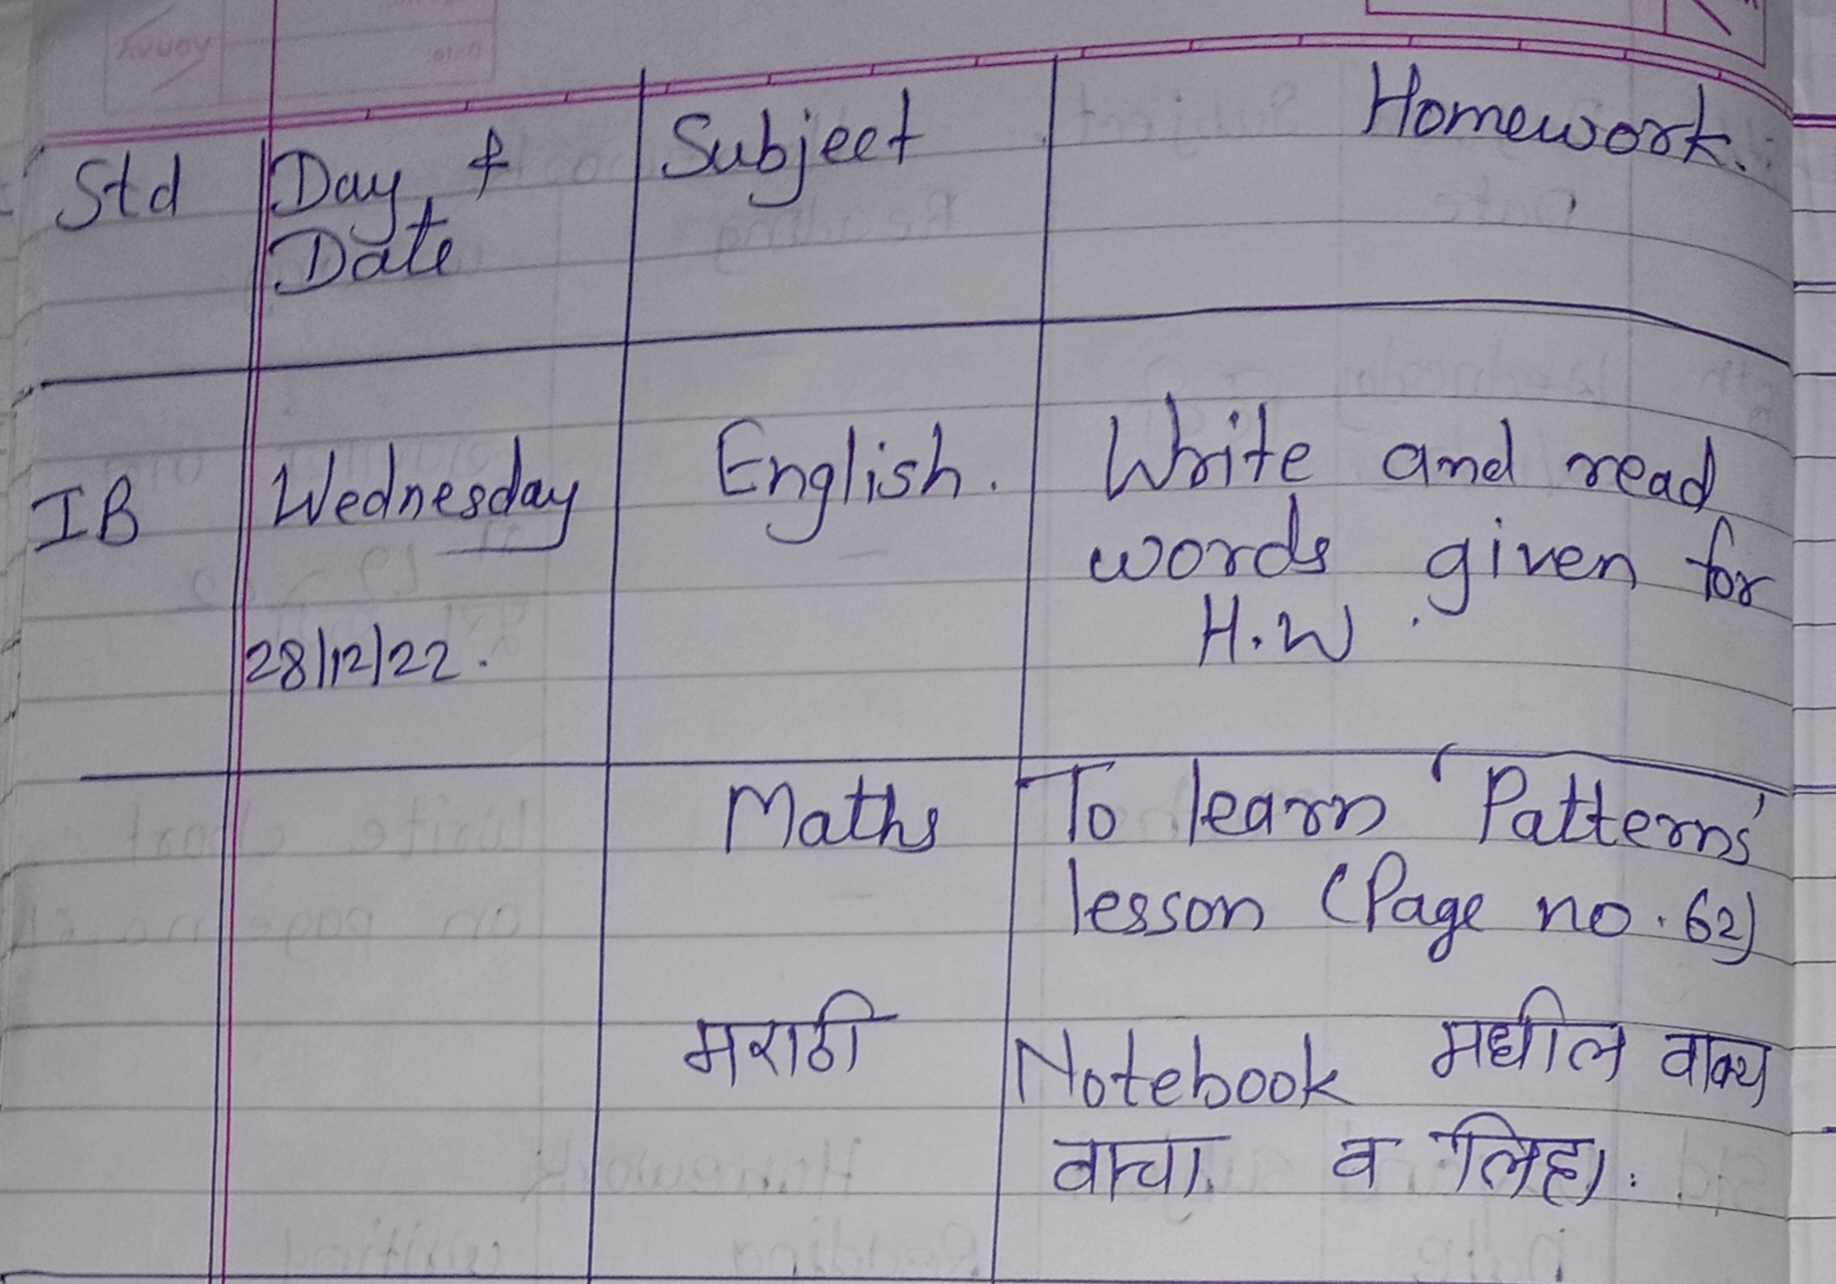 Std Day & Subject Homework.
Date
IB Wednesday English. Write and read
words given for
28/12/22. H.W.
Maths To learn 'Patterns'
lesson (Page no. 62)
मराठी Notebook मधील वाक्य
वाचा व लिहा.